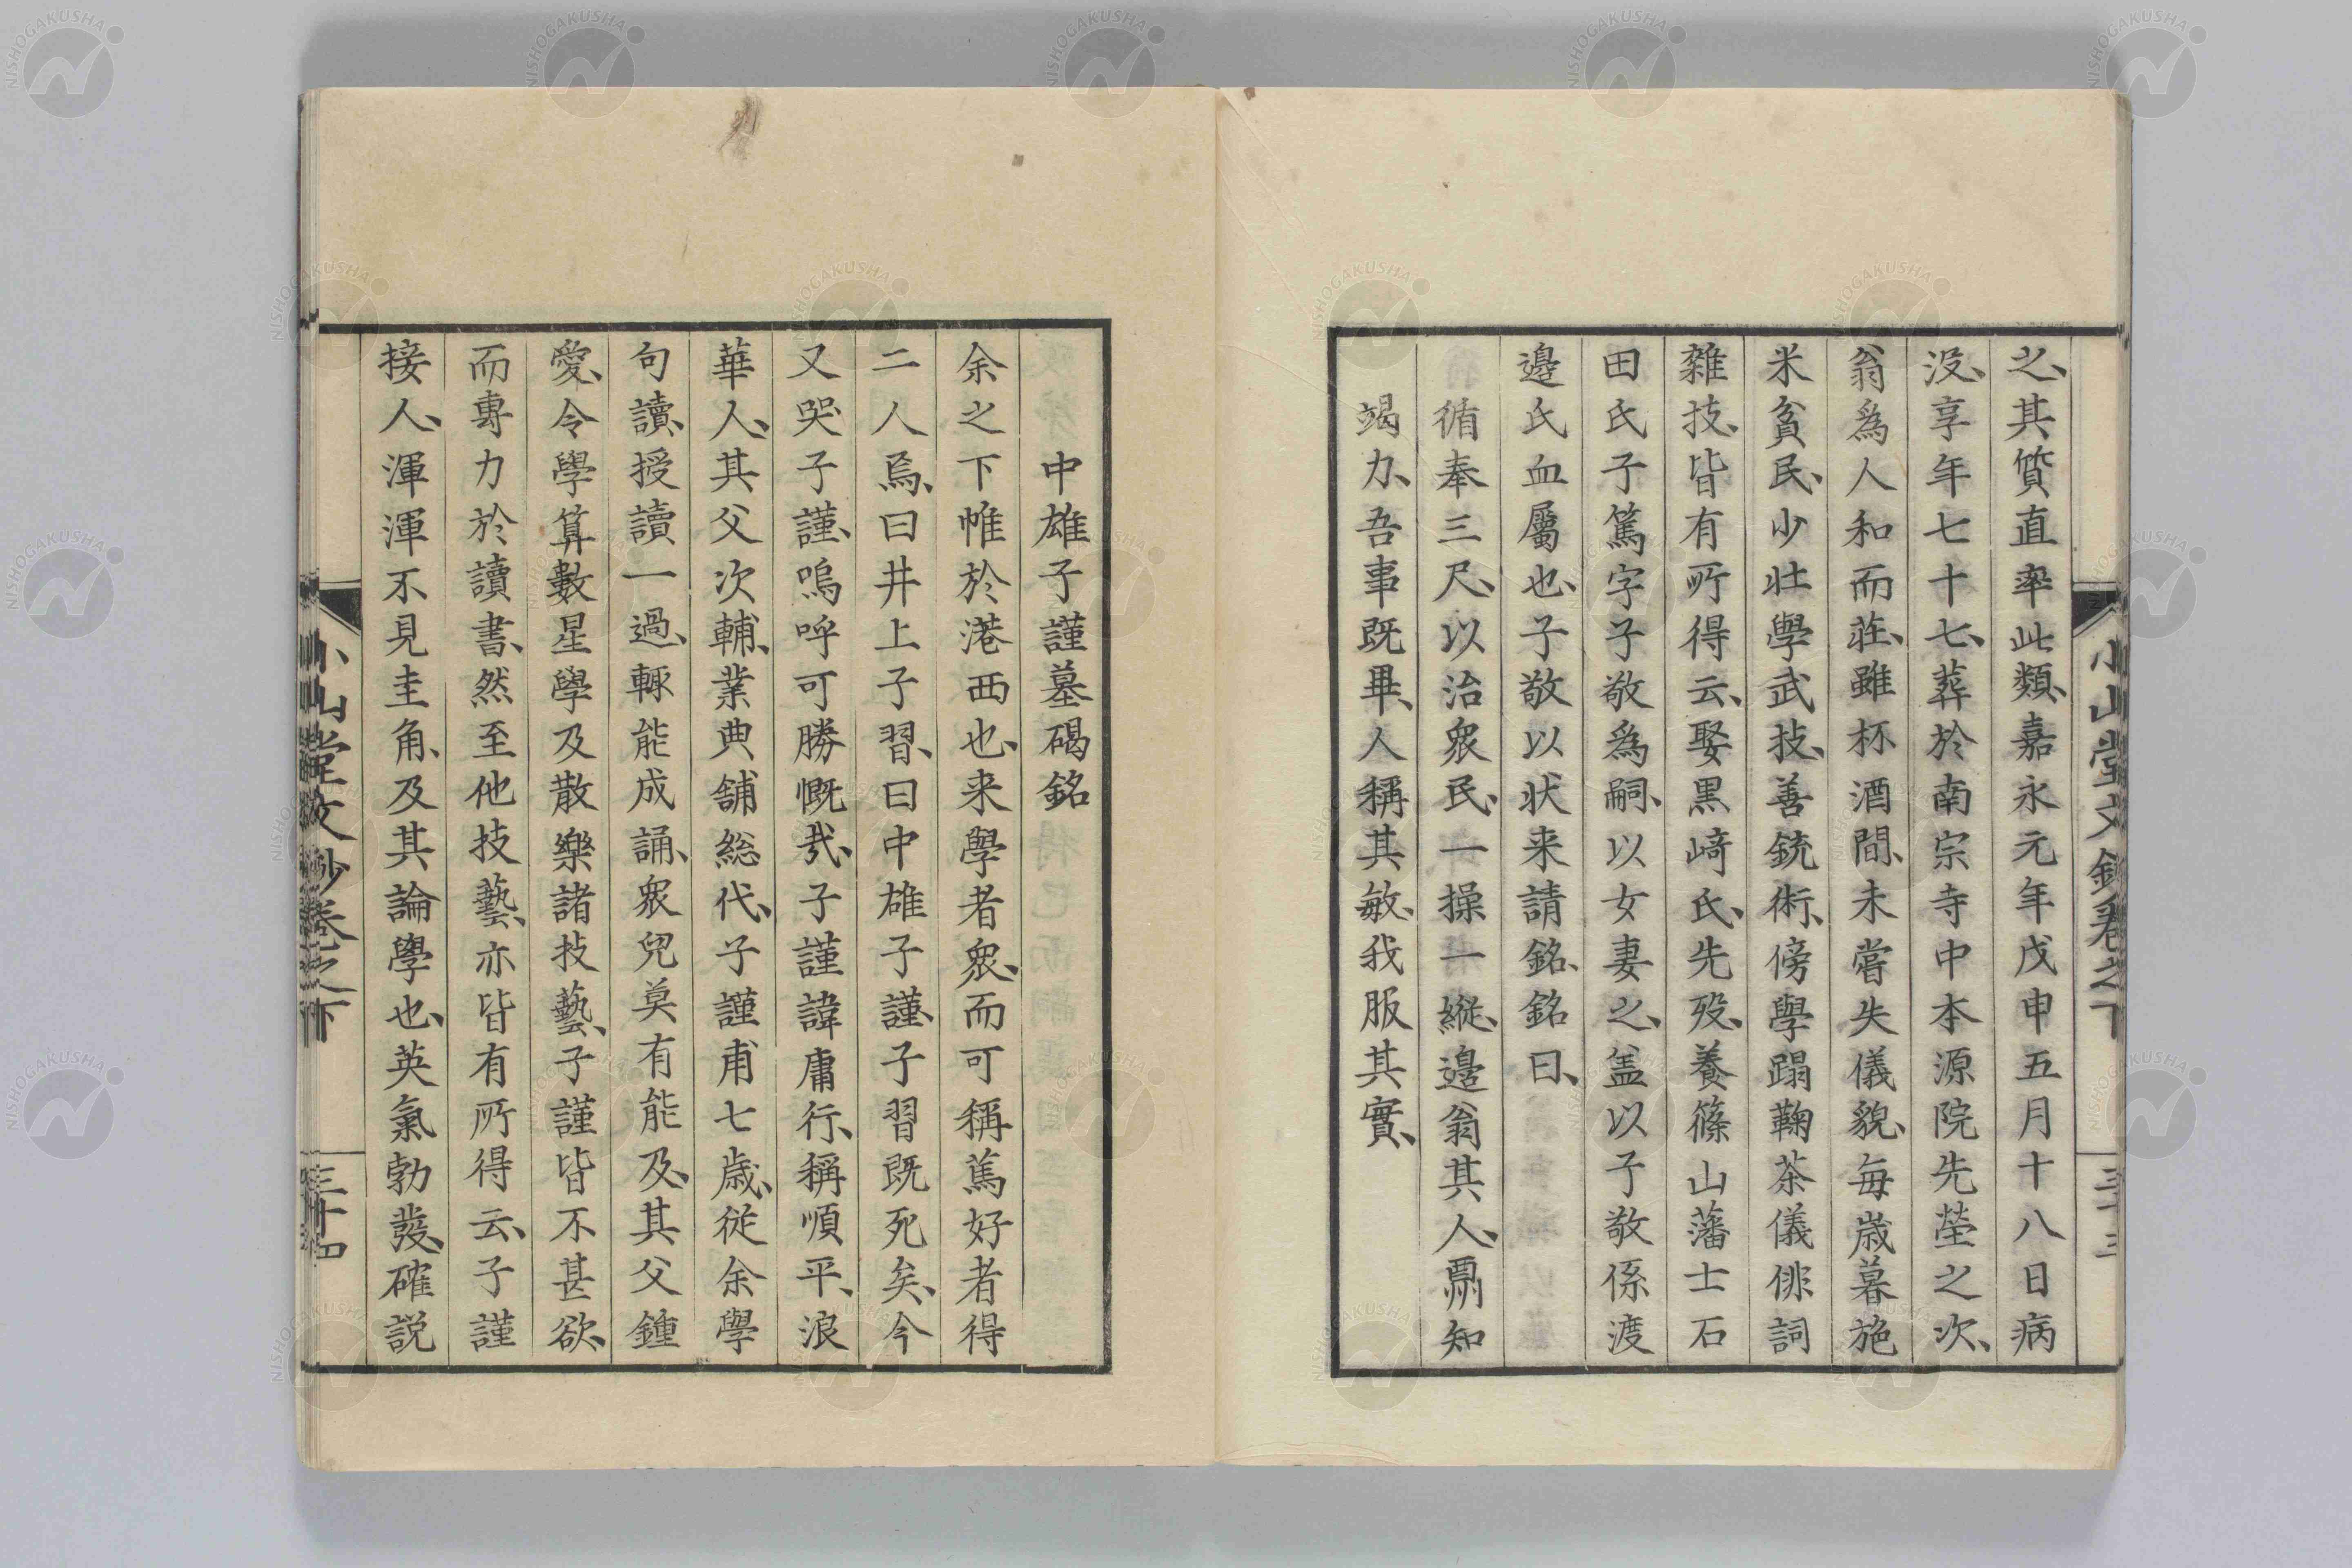 小山堂文鈔卷之下
三十三
之、其質直率此類、嘉永元年戊申五月十八日病
没、享年七十七、葬於南宗寺中本源院先塋之次、
翁爲人和而莊、雖杯酒間、未嘗失儀貌、毎歳暮施
米貧民、少壯學武技、善銃術、傍學蹋鞠茶儀俳詞
雜技、皆有所得云、娶黒﨑氏、先歿、養篠山藩士石
田氏子篤字子敬爲嗣、以女妻之、盖以子敬係渡
邉氏血屬也、子敬以状来請銘、銘曰、
循奉三尺、以治衆民、一操一縱、邉翁其人、爵知
竭力、吾事既畢、人稱其敏、我服其實、
中雄子謹墓碣銘
余之下帷於港西也、来學者衆、而可稱篤好者得
二人焉、曰井上子習、曰中雄子謹、子習既死矣、今
又哭子謹、嗚呼可勝慨哉、子謹諱庸行、稱順平、浪
華人、其父次輔、業典舗総代、子謹甫七歳、從余學
句讀、授讀一過、輙能成誦、衆兒莫有能及、其父鍾
愛、令學算數星學及散樂諸技藝、子謹皆不甚欲、
而專力於讀書、然至他技藝、亦皆有所得云、子謹
接人、渾渾不見圭角、及其論學也、英氣勃發、確説
小山堂文鈔卷之下
三十四
NISHOGAKUSHA